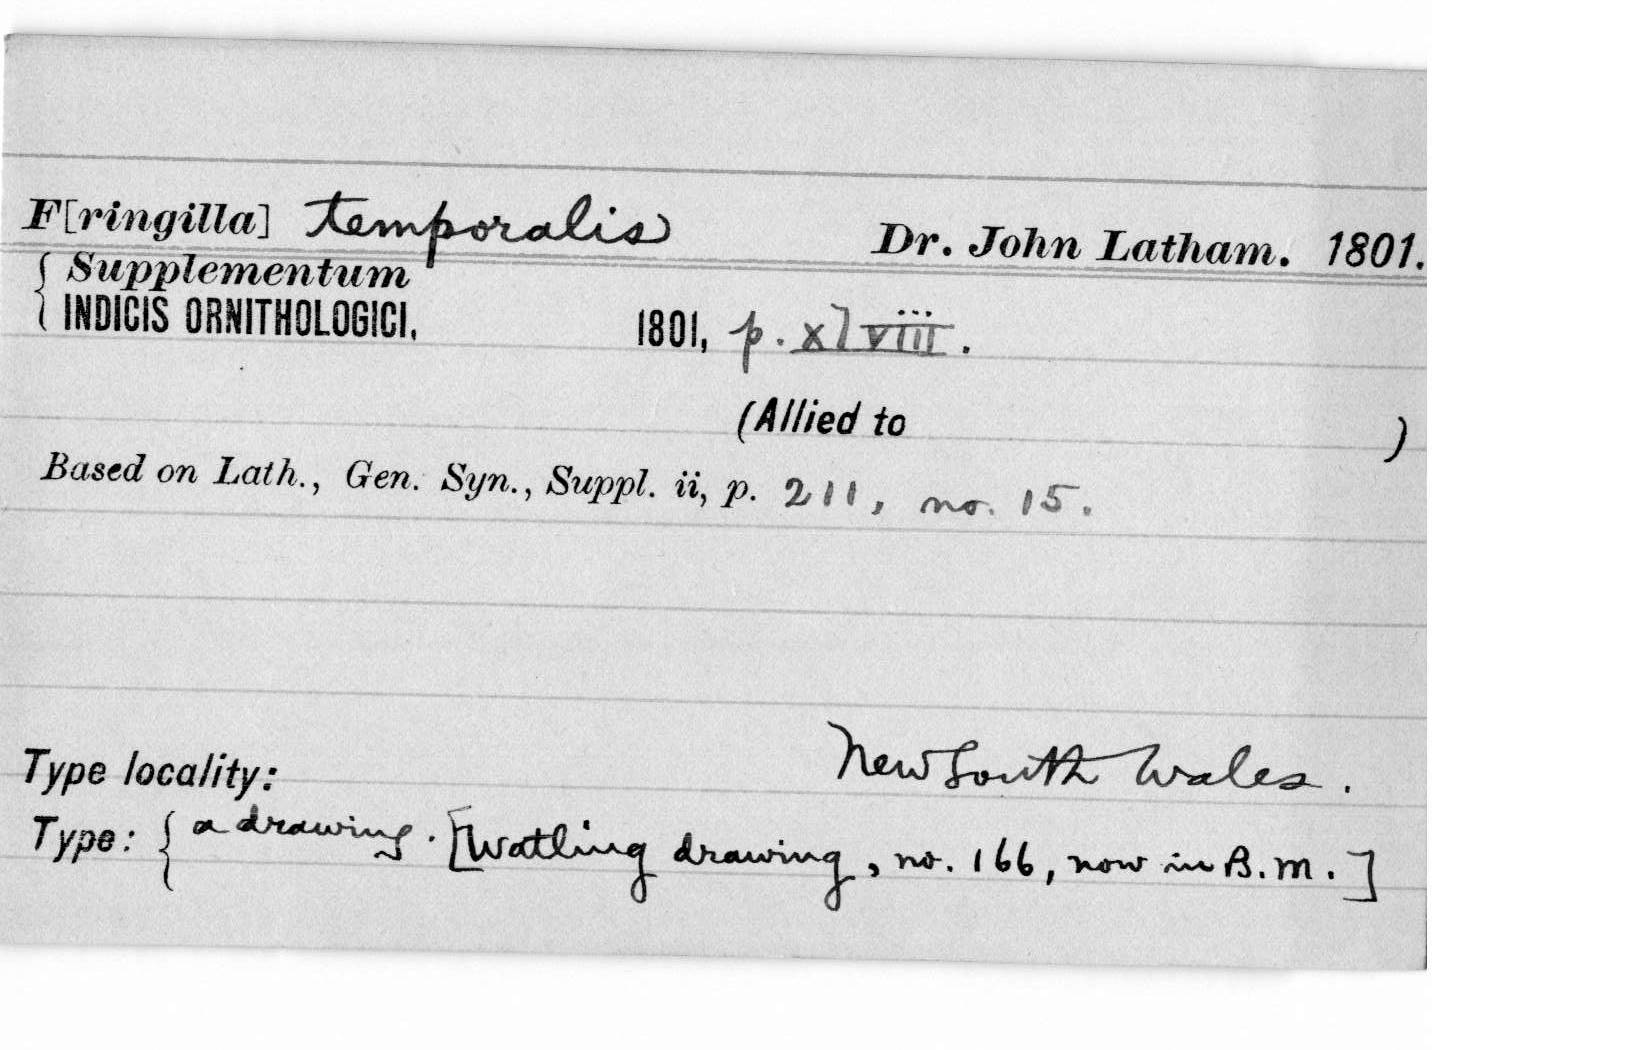 F[ringilla] temporalis Dr. John Latham. 1801.
{ Supplementum
INDICIS ORNITHOLOGICI, 1801, p. xlviii.
(Allied to )
Based on Lath., Gen. Syn., Suppl. ii, p. 211, no. 15.
Type locality: New South Wales.
Type: { a drawing. [Watling drawing, no. 166, now in B.M.]